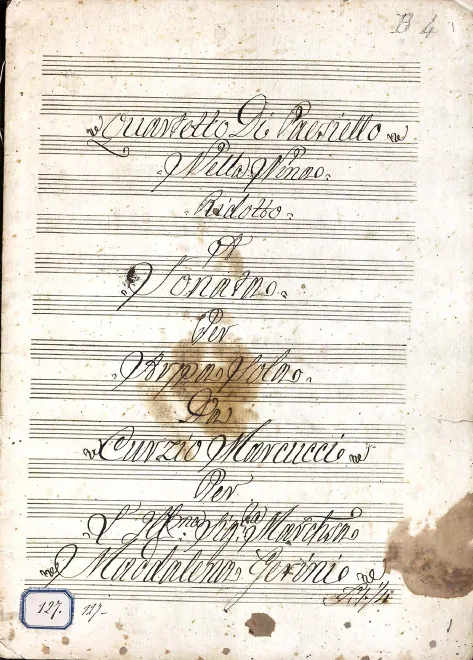 B 4
Quartetto Di Paesiello
Nella Nina
Ridotto
A
Sonata
Per
Arpa Sola
Da
Curzio Marcucci
Per
L' Ill.ma Sig.ra Marchsa
Magdalena Gerini
127. 127-